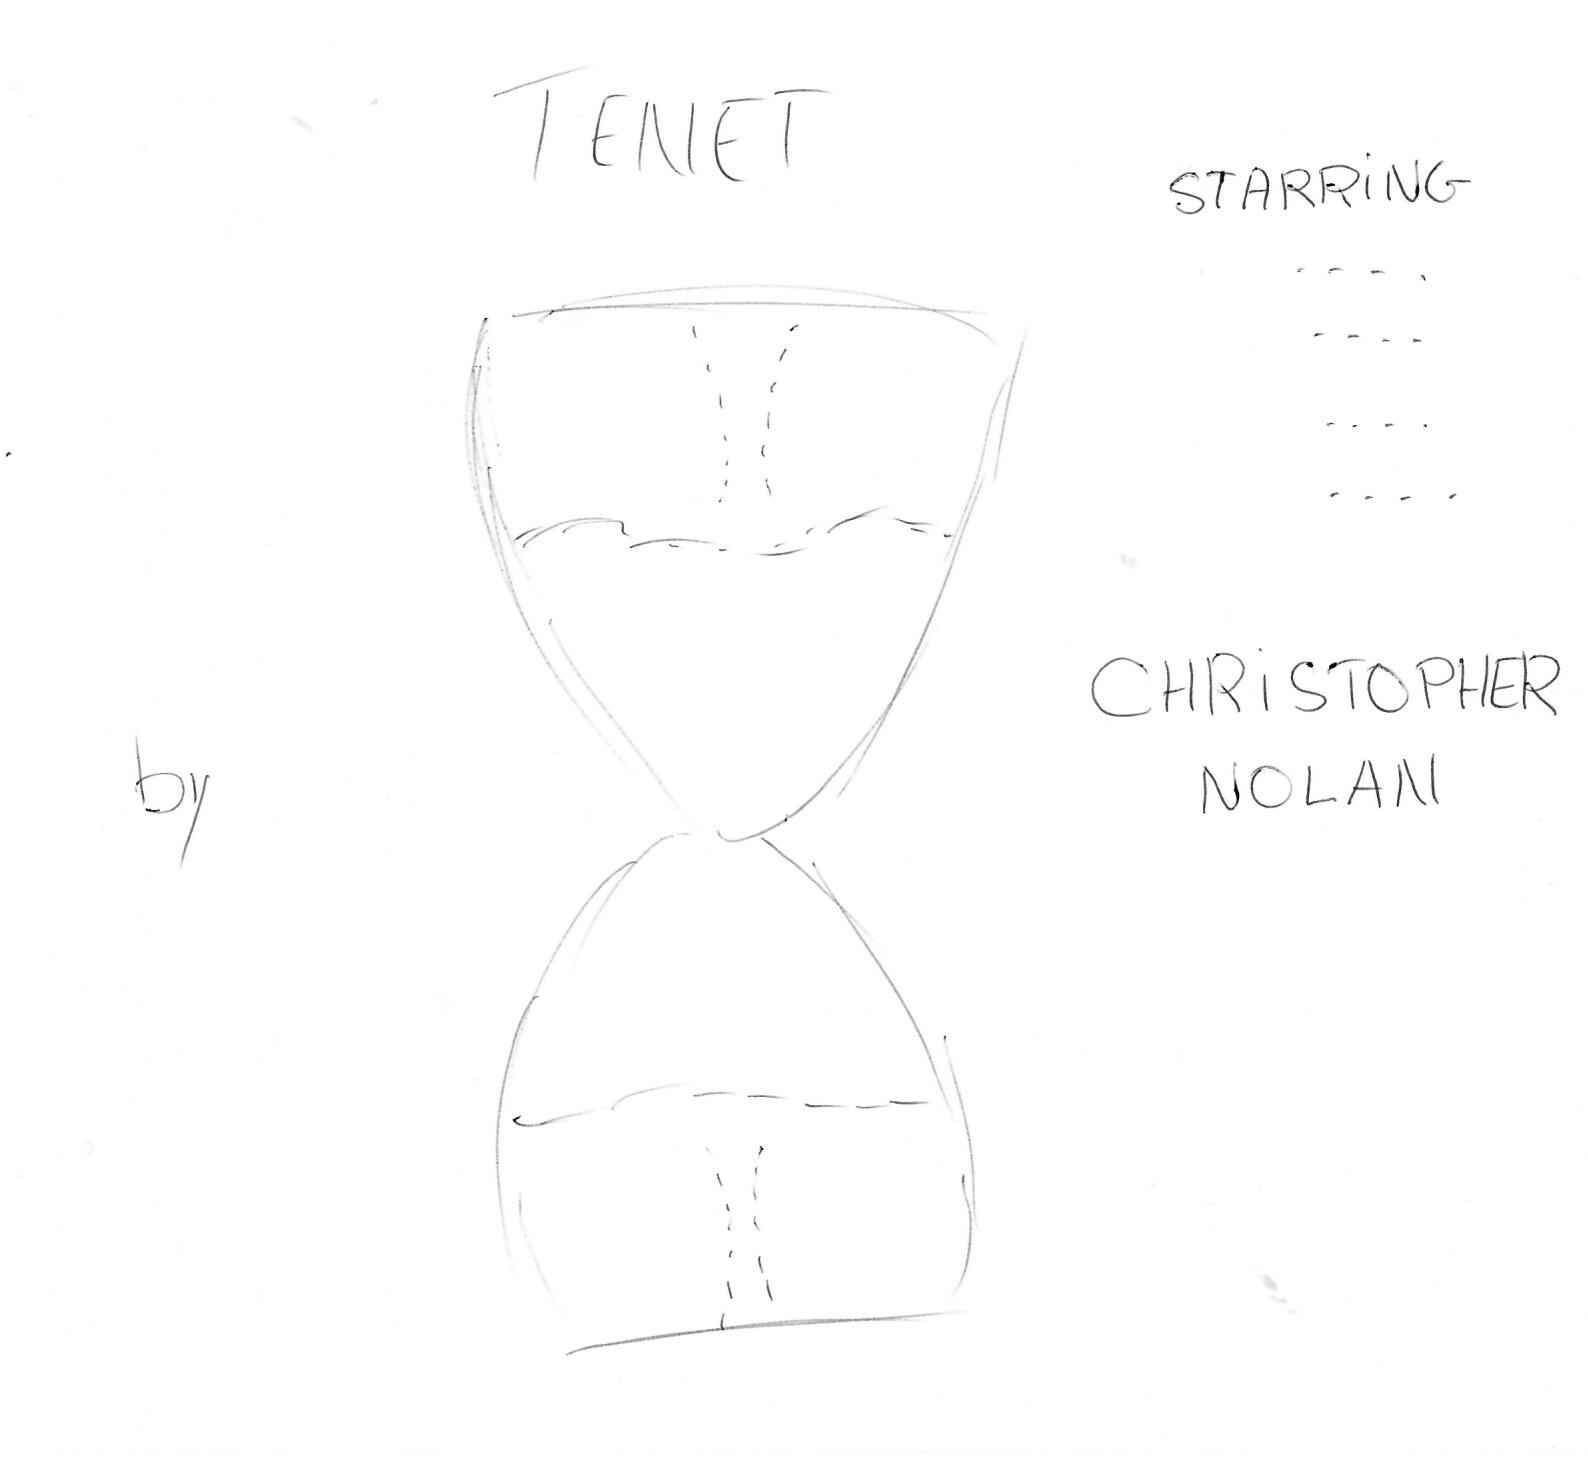 TENET
STARRiNG
- - - -
- - - -
- - - -
- - - -
by
CHRiSTOPHER
NOLAN